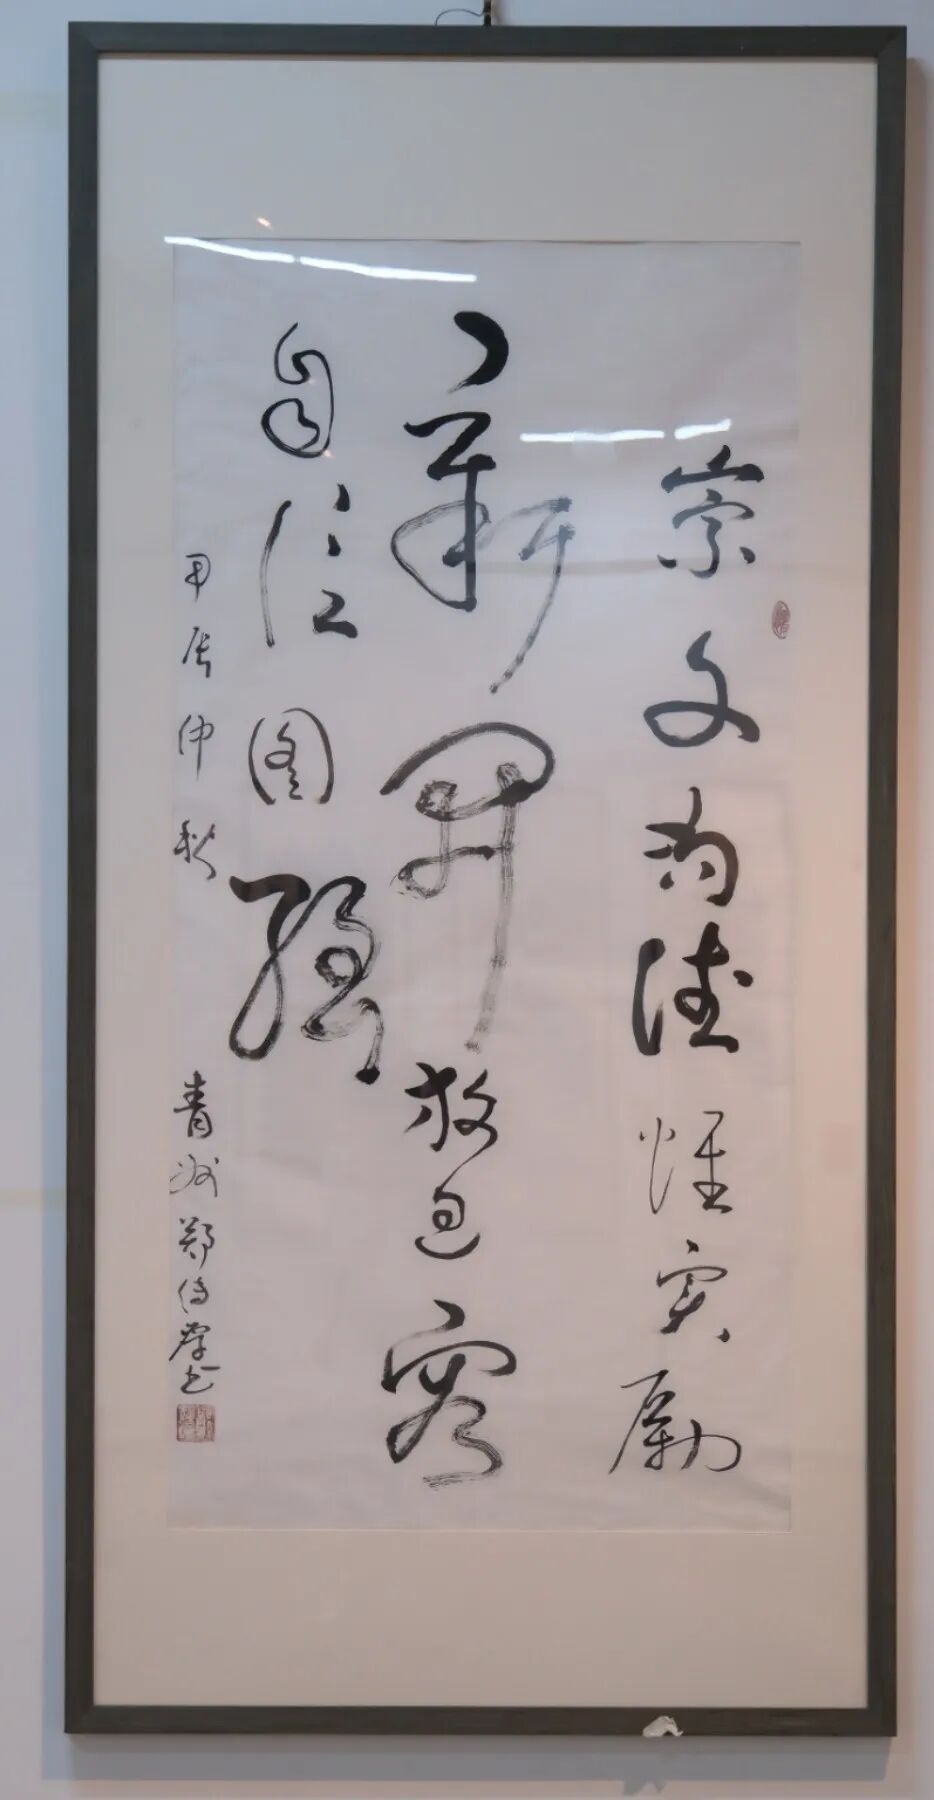 崇文尚德惟实励
新开放包容
自信图强
甲辰仲秋
青州郑传学书